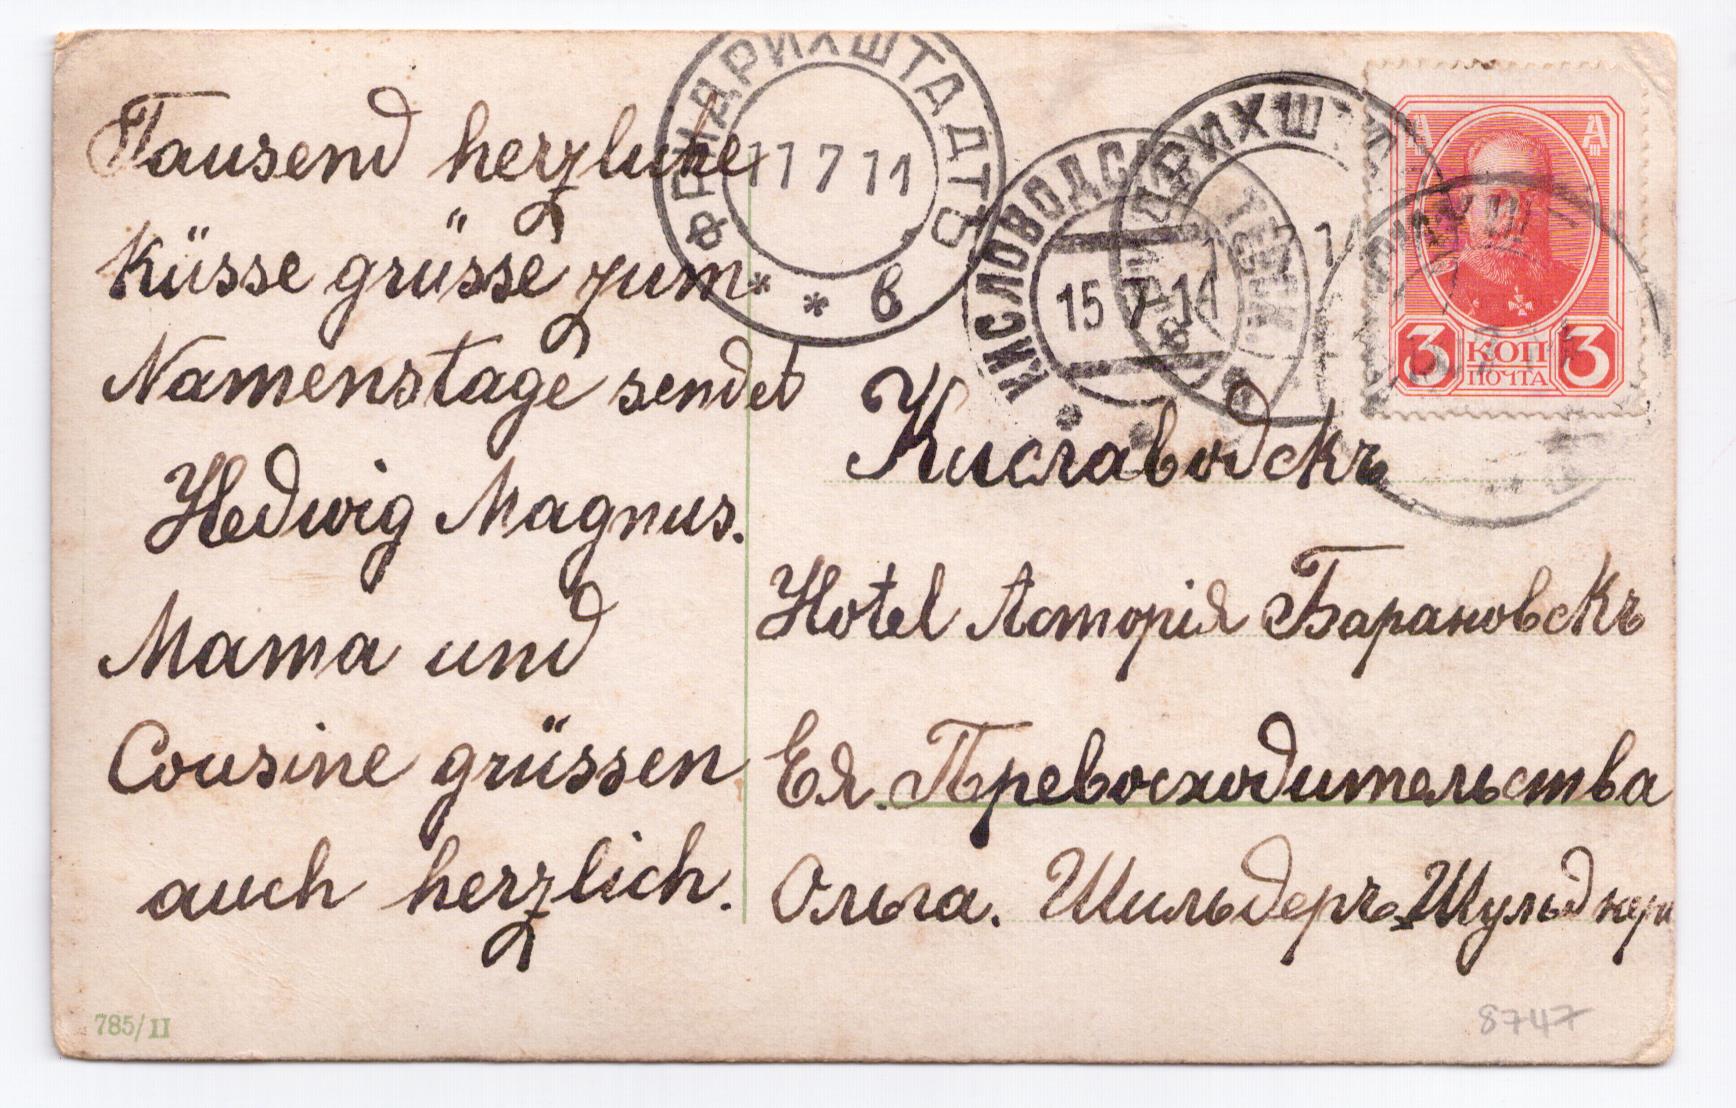 Tausend herzliche
Küsse grüsse zum
Namenstage sendet
Hedwig Magnus.
Mama und
Cousine grüssen
auch herzlich.
785/II
ФРИДРИХШТАДТЪ
11 7 11
* * в
КИСЛОВОДС
15 7 1
ДРИХШ
3 КОП 3
ПОЧТА
Киславодскъ
Hotel Асторія Барановскъ
Ея. Превосходительства
Ольга. Шильдеръ-Шульднеръ
8747